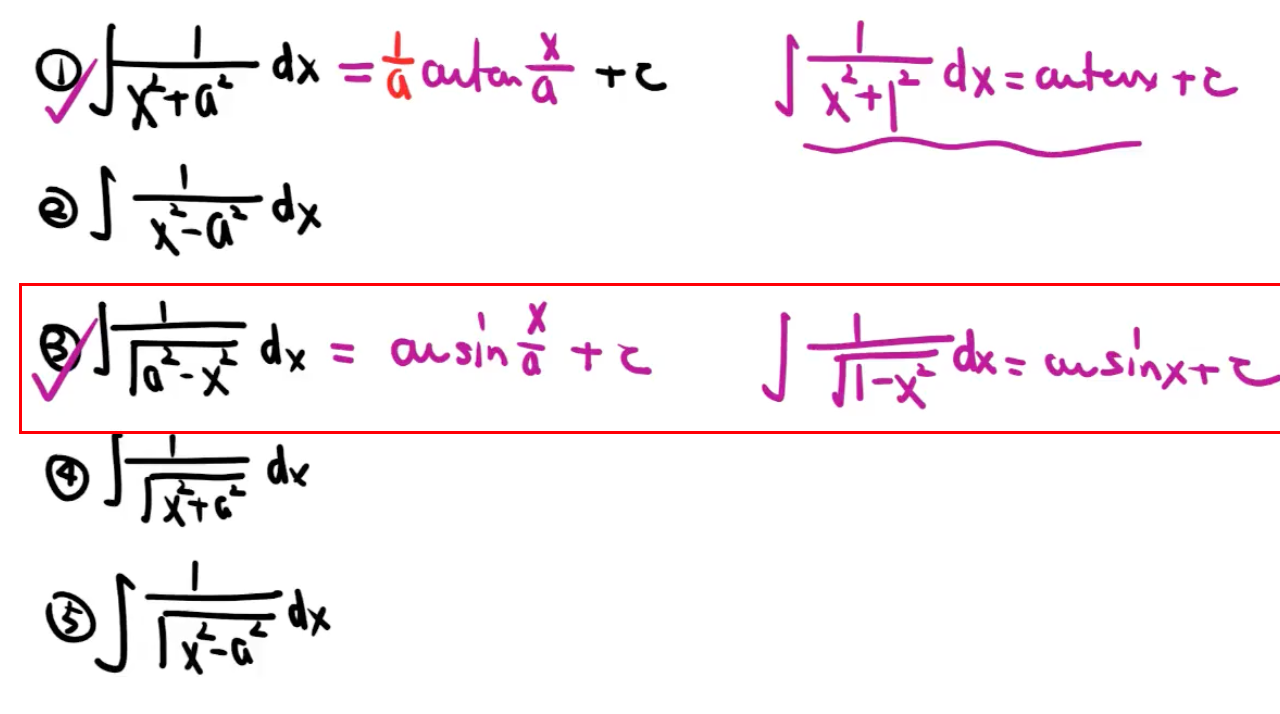 ① ∫ 1/(x²+a²) dx = 1/a arctan x/a + c ∫ 1/(x²+1²) dx = arctan x + c
② ∫ 1/(x²-a²) dx
③ ∫ 1/√(a²-x²) dx = arcsin x/a + c ∫ 1/√(1-x²) dx = arcsin x + c
④ ∫ 1/√(x²+a²) dx
⑤ ∫ 1/√(x²-a²) dx